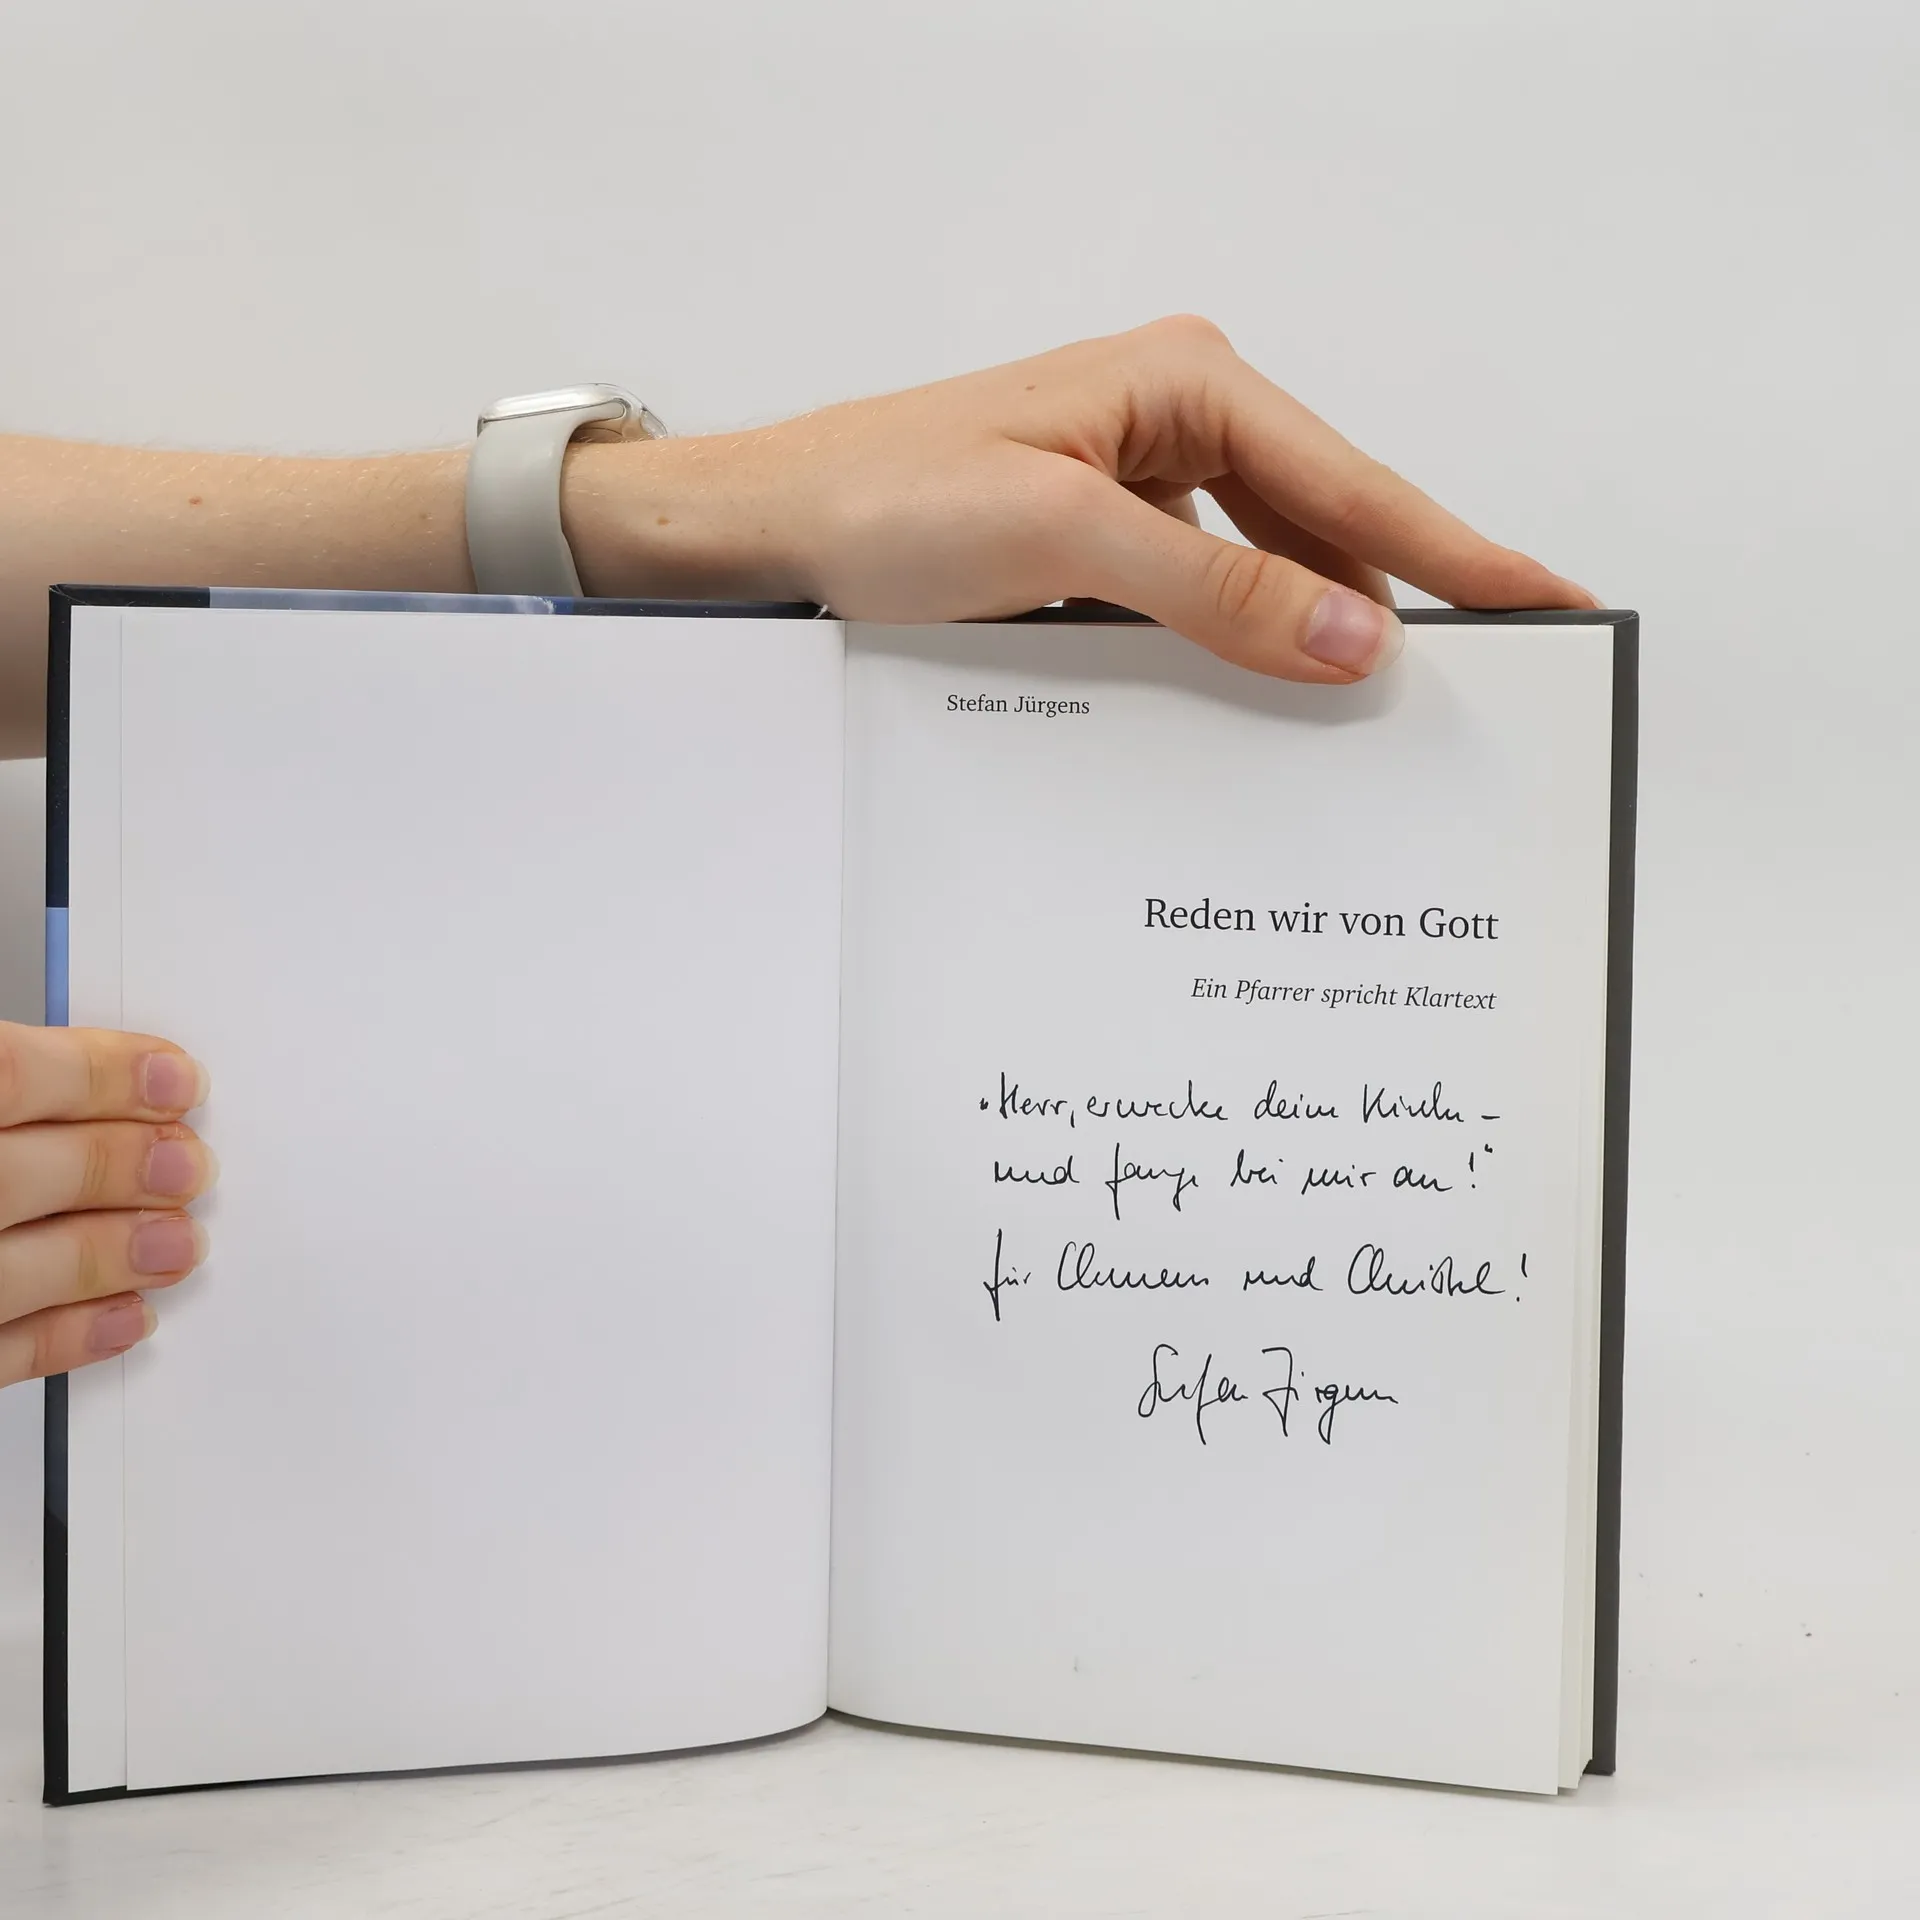 Stefan Jürgens
Reden wir von Gott
Ein Pfarrer spricht Klartext
„Herr, erwecke deine Kirche –
und fange bei mir an!“
für Clemens und Christel!
Stefan Jürgens